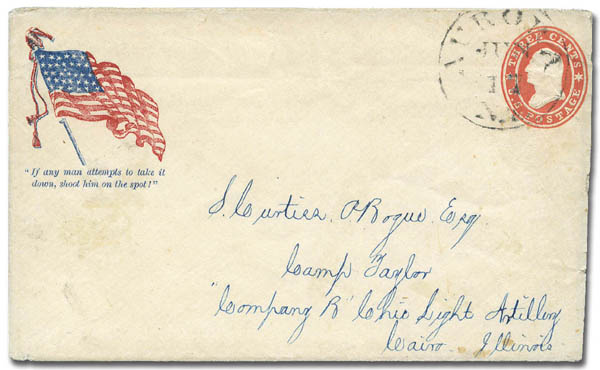 "If any man attempts to take it
down, shoot him on the spot!"
THREE CENTS
U.S. POSTAGE
JUN
17
S. Curtiss. O'Rogue Esq
Camp Taylor
"Company R" Chio Light Artillery
Cairo Illinois